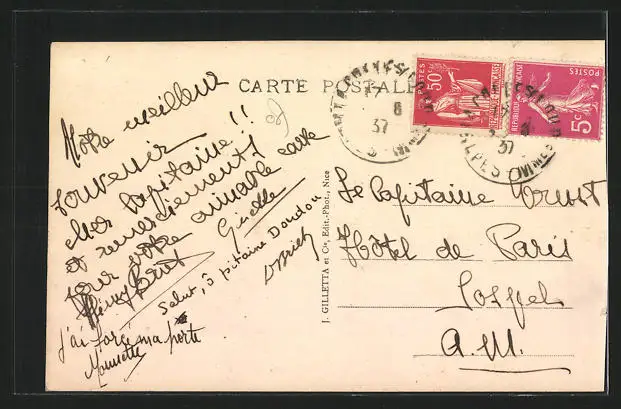 CARTE POSTALE
Notre meilleur
souvenir !!
cher Capitaine !
et remerciements
pour votre aimable carte
Giselle
Salut, ô pitaine Doudou
j'ai forcé ma porte
Le Capitaine
Hôtel de Paris
Sospel
A.M.
J. GILLETTA et Cie, Edit.-Phot., Nice
POSTES
50c
REPUBLIQUE FRANÇAISE
POSTES
5c
REPUBLIQUE FRANÇAISE
8
37
37